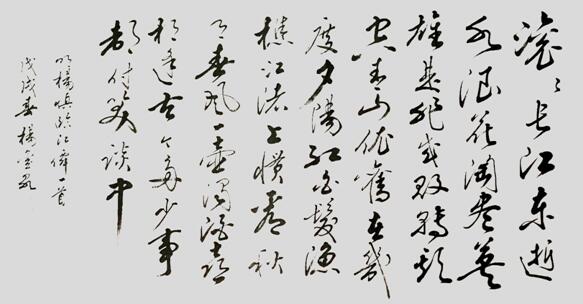 滚〻长江东逝
水浪花淘尽英
雄是非成败转头
空青山依舊在幾
度夕陽红白髮渔
樵江渚上惯看秋
月春风一壶浊酒喜
相逢古今多少事
都付笑谈中
明楊慎临江僊一首
戊戌春楊金